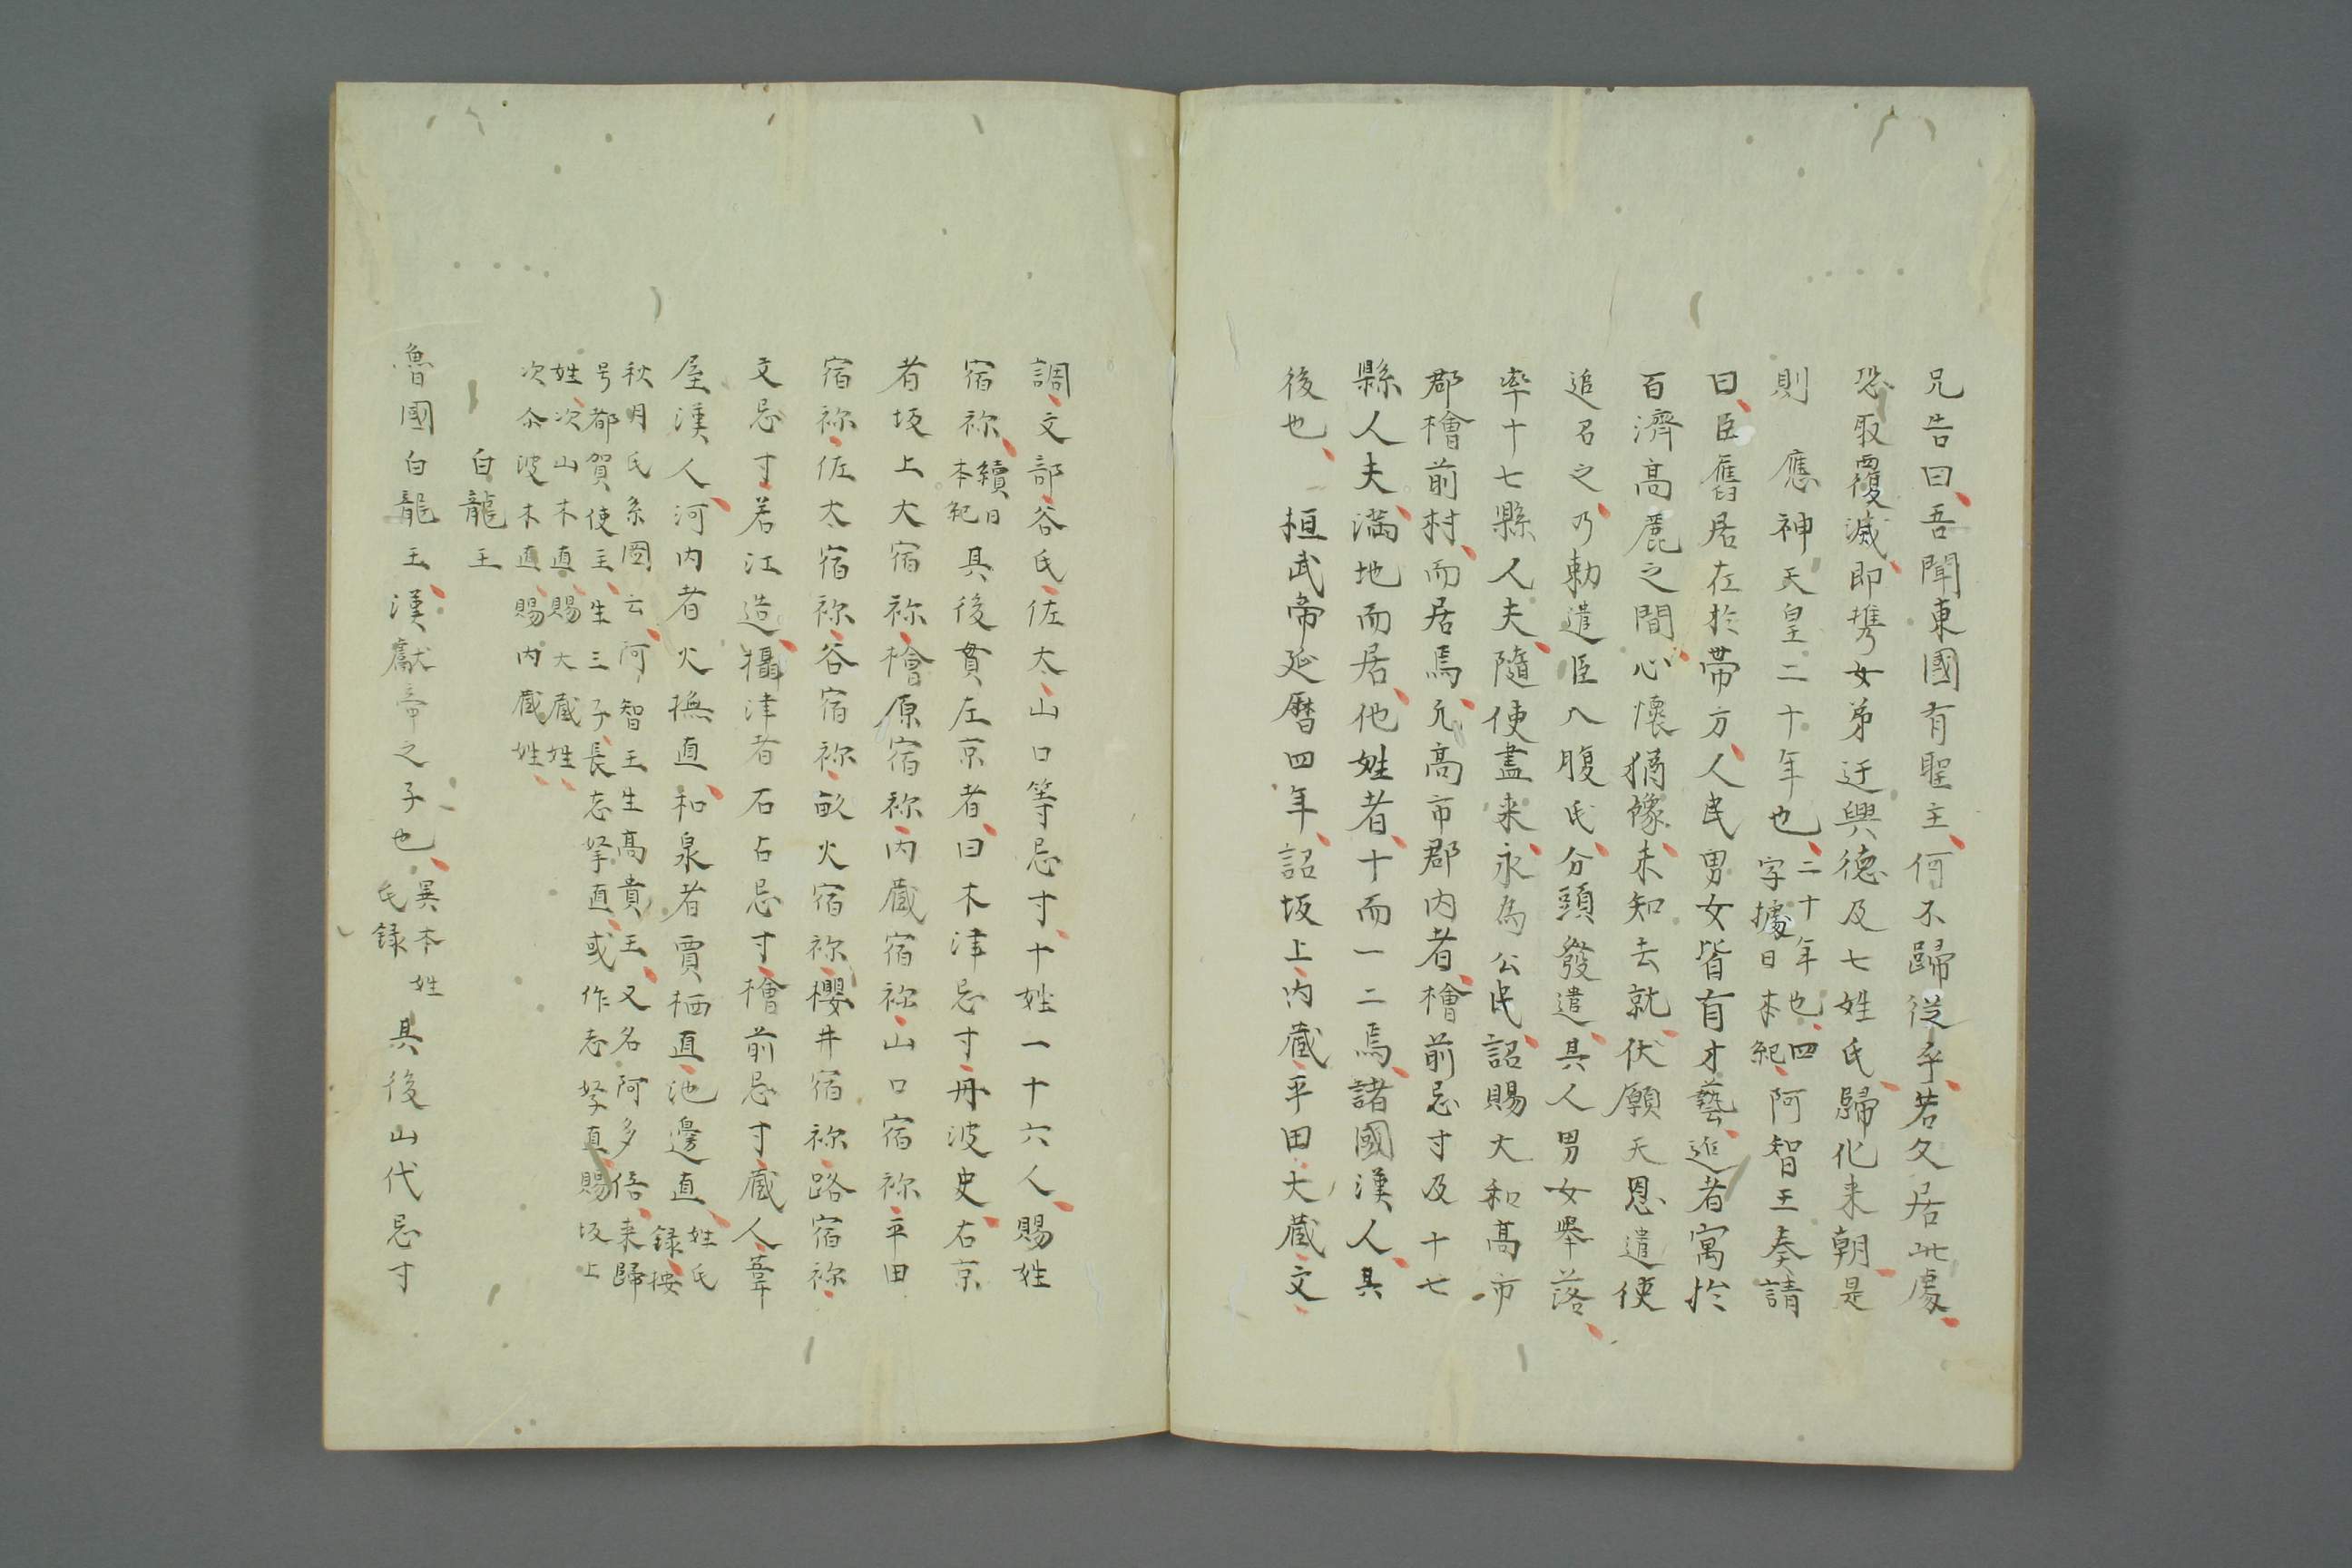 兄告曰吾聞東國有聖主何不歸從乎若久居此處
恐取覆滅即携女弟迂興德及七姓氏歸化来朝是
則　應神天皇二十年也二十年也四字據日本紀阿智王奏請
曰臣舊居在於帶方人民男女皆有才藝近者寓於
百濟高麗之間心懷猶豫未知去就伏願天恩遣使
追召之乃勅遣臣八腹氏分頭發遣其人男女舉落
率十七縣人夫隨使盡来永為公民詔賜大和高市
郡檜前村而居焉凢高市郡内者檜前忌寸及十七
縣人夫満地而居他姓者十而一二焉諸國漢人其
後也　桓武帝延暦四年詔坂上内蔵平田大蔵文
調文部谷氏佐太山口等忌寸十姓一十六人賜姓
宿祢續日本紀其後貫左京者曰木津忌寸丹波史右京
者坂上大宿祢檜原宿祢内蔵宿祢山口宿祢平田
宿祢佐太宿祢谷宿祢畝火宿祢櫻井宿祢路宿祢
文忌寸若江造攝津者石占忌寸檜前忌寸蔵人葦
屋漢人河内者火撫直和泉者賈栖直池邊直姓氏録按
秋月氏系圖云阿智王生高貴王又名阿多倍来歸
号都賀使主生三子長志拏直或作志拏直賜坂上
姓次山木直賜大蔵姓
次尒波木直賜内蔵姓
白龍王
魯國白龍王漢獻帝之子也異本姓氏録其後山代忌寸